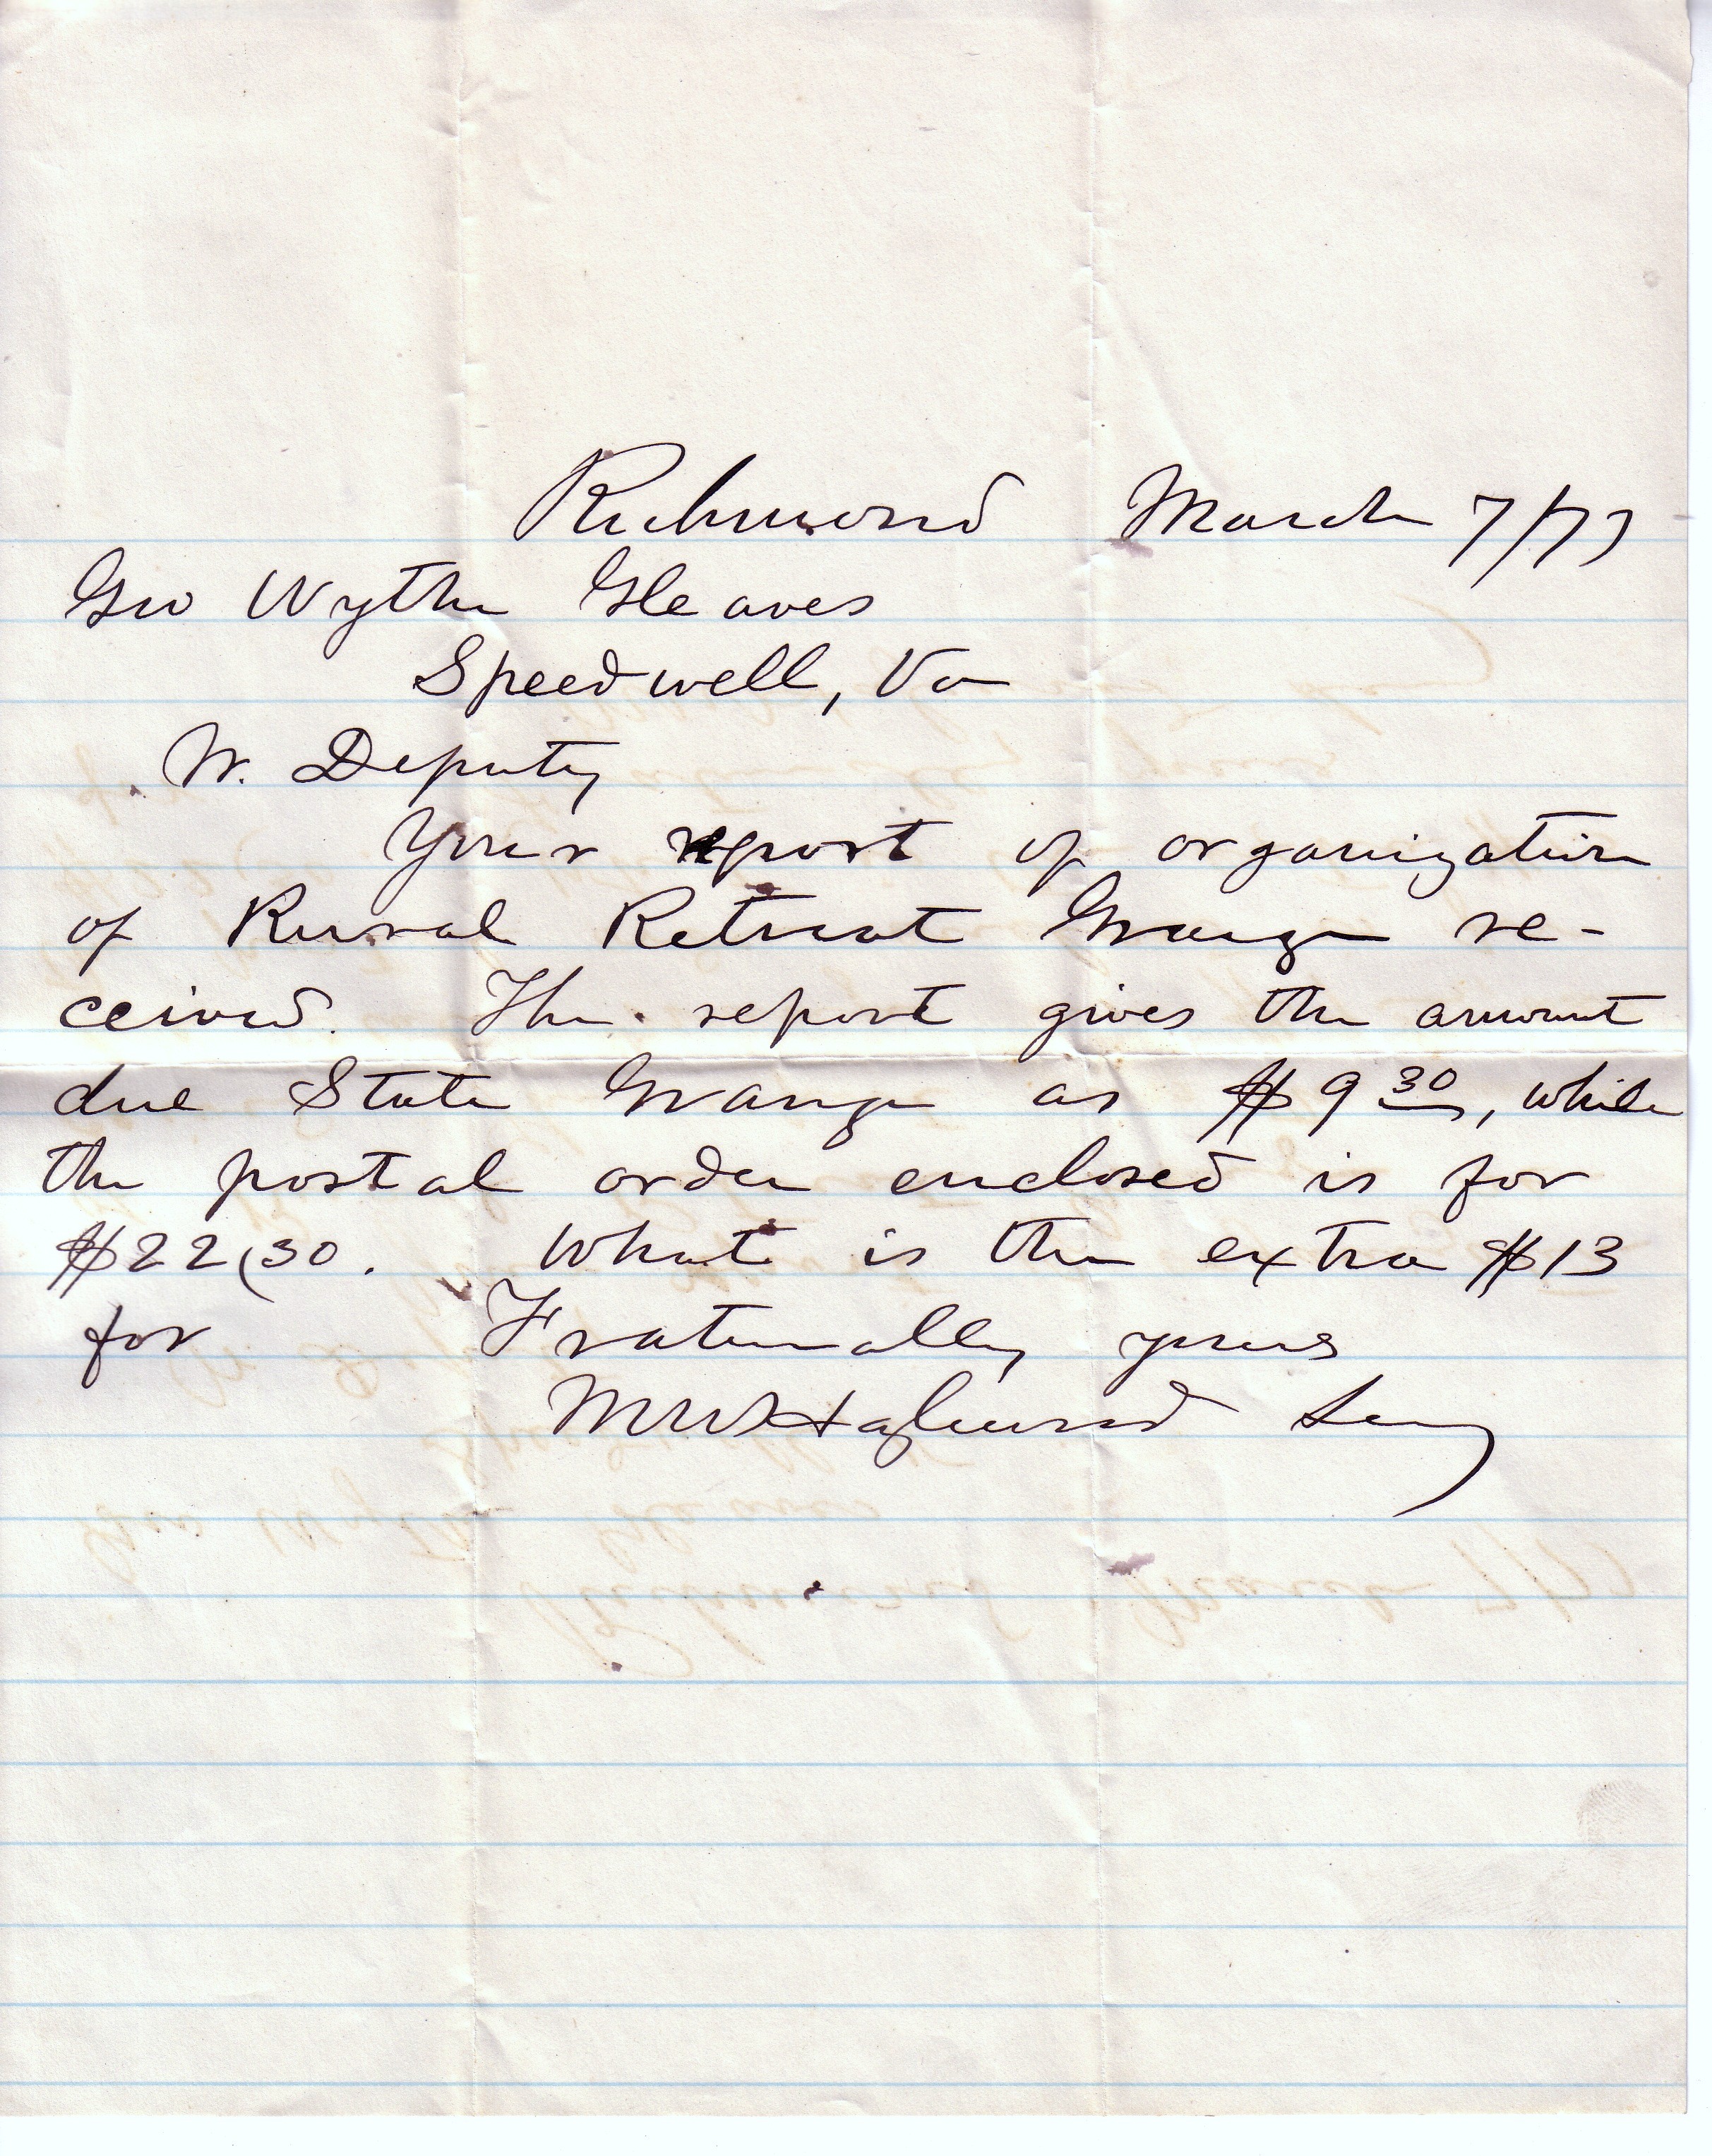 Richmond March 7/77
Geo Wythe Gleaves
Speedwell, Va
W. Deputy
Your report of organization
of Rural Retreat Grange re-
ceived. The report gives the amount
due State Grange as $9 30, while
the postal order enclosed is for
$22(30. What is the extra $13
for Fraternally yours
M W Hazlewood Secy